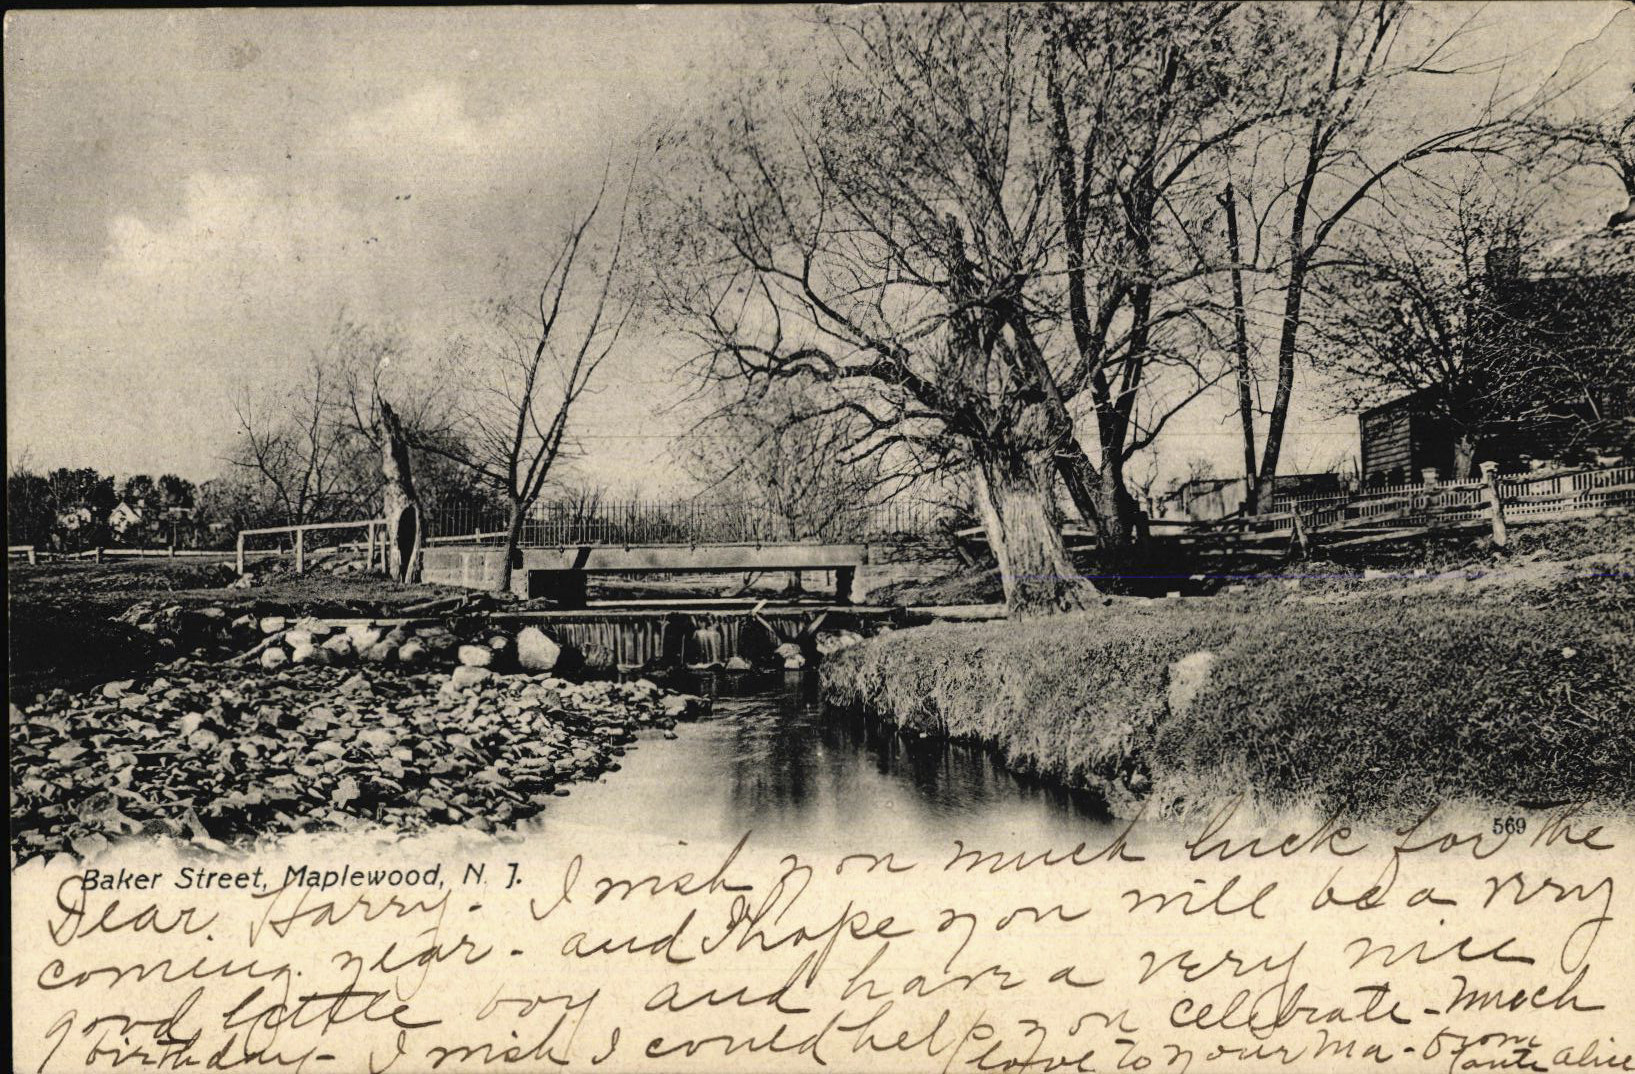 569
Baker Street, Maplewood, N. J.
Dear Harry - I wish you much luck for the
coming year - and I hope you will be a very
good little boy and have a very nice
birthday - I wish I could help you celebrate - Much
love to your Ma - From
aunt Alice